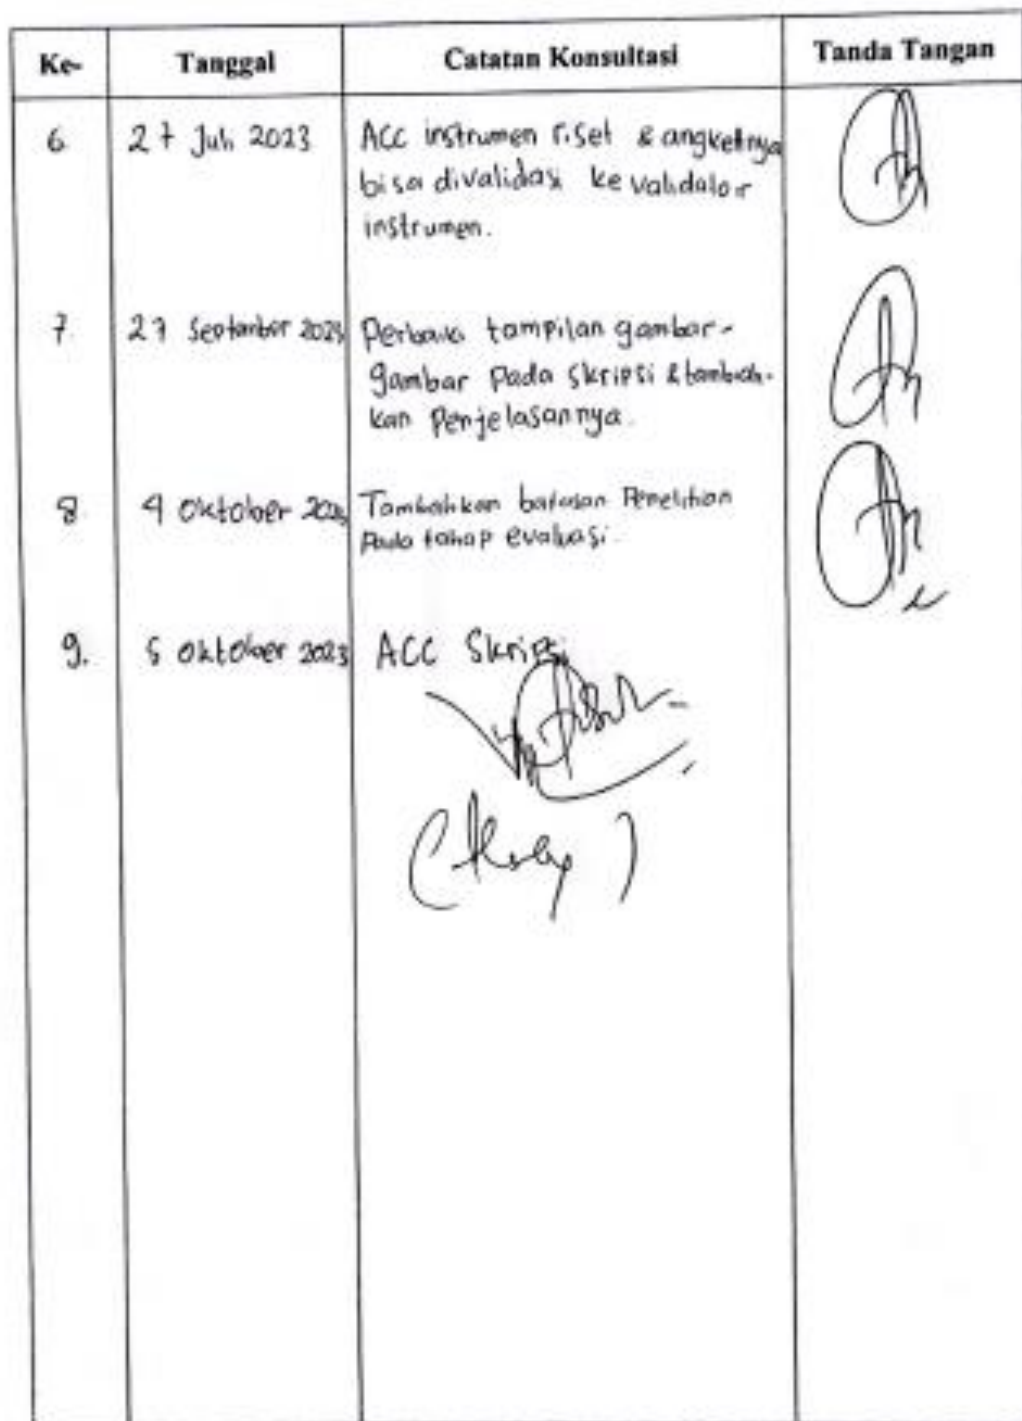 Ke- Tanggal Catatan Konsultasi Tanda Tangan
6. 27 Juli 2023 ACC instrumen riset & angketnya
bisa divalidasi ke validator
instrumen.
7. 27 September 2023 Perbaiki tampilan gambar-
gambar pada skripsi & tambah-
kan Penjelasannya.
8. 4 Oktober 2023 Tambahkan batasan Penelitian
Pada tahap evaluasi.
9. 5 Oktober 2023 ACC Skripsi